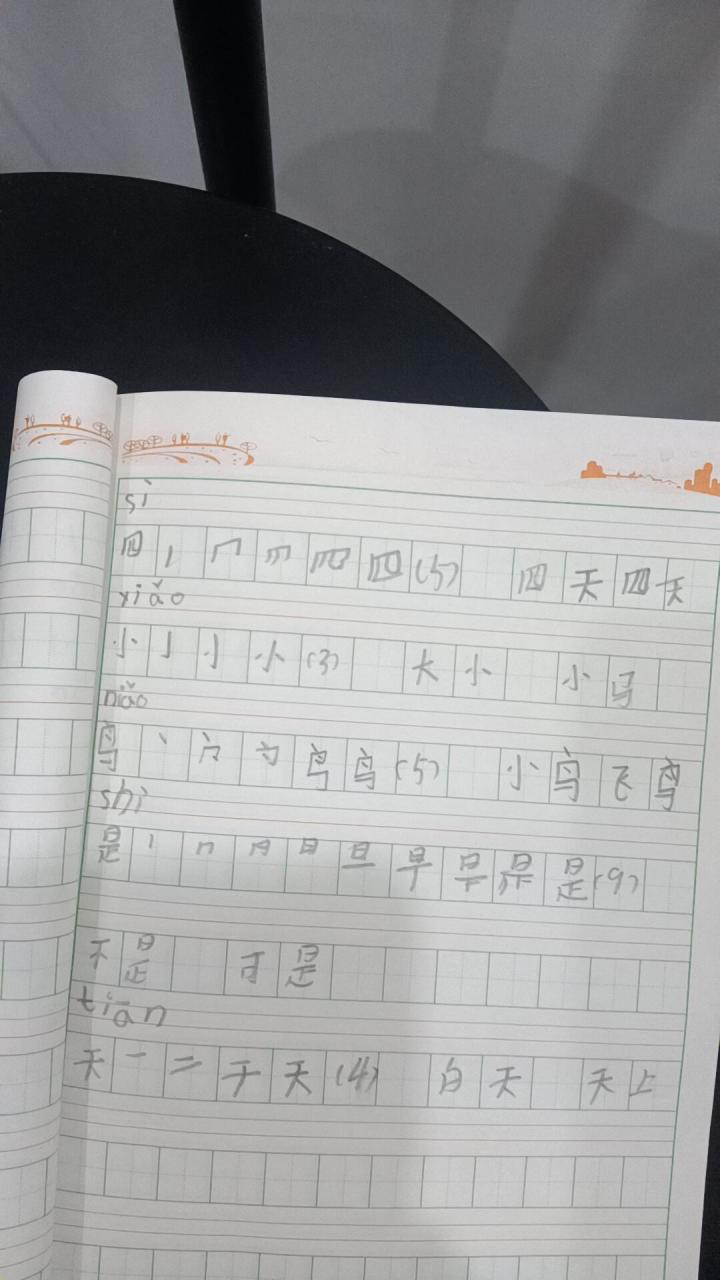 sì
四 丨 冂 四 (5) 四天四天
xiǎo
小 亅 小 (3) 大小 小马
niǎo
鸟 丶 鸟 (5) 小鸟飞鸟
shì
是 丨 冂 日 旦 早 是 (9)
不是 可是
tiān
天 一 二 天 (4) 白天 天上